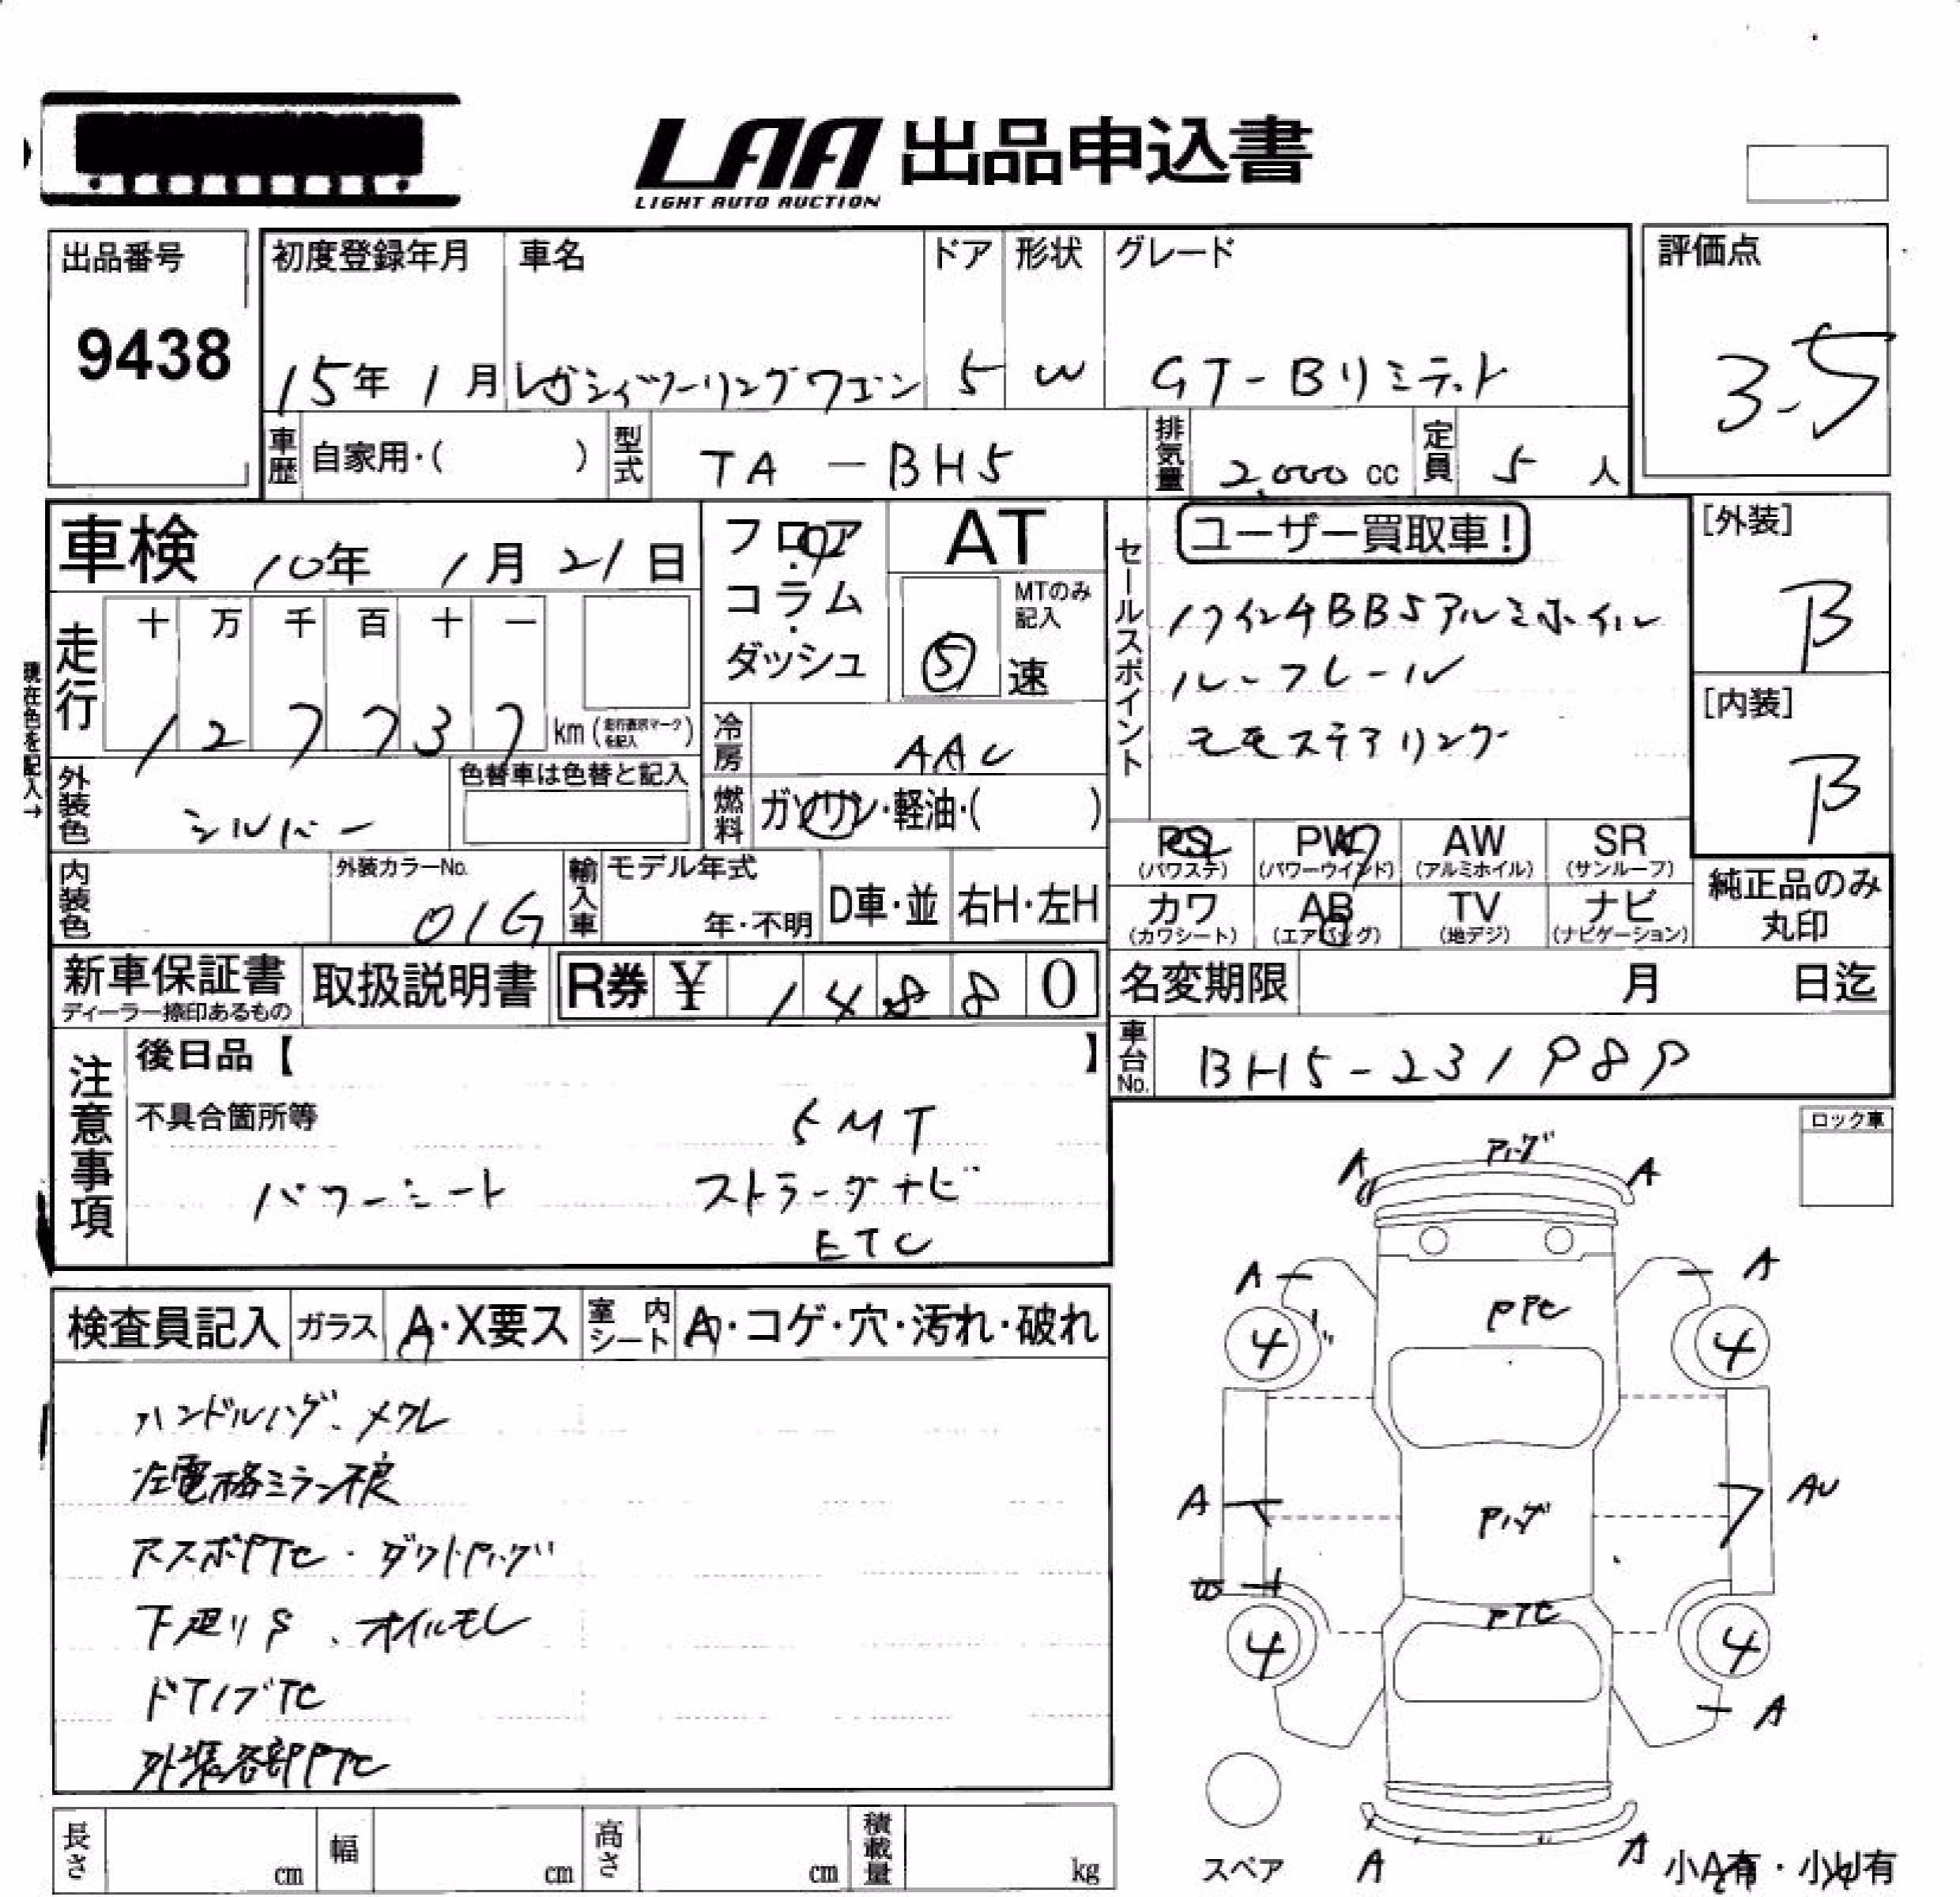 LAA 出品申込書
LIGHT AUTO AUCTION
出品番号
9438
初度登録年月
15年 1月
車名
レガシィツーリングワゴン
ドア
5
形状
W
グレード
GT-Bリミテット
評価点
3.5
車歴 自家用・( )
型式 TA-BH5
排気量 2,000 cc
定員 5 人
車検 10年 1月 21日
フロア・コラム・ダッシュ
AT
MTのみ記入
⑤ 速
セールスポイント
ユーザー買取車!
17インチBBSアルミホイル
ルーフレール
モモステアリング
[外装]
B
[内装]
B
現在色を記入→
走行
十 万 千 百 十 一
1 2 7 7 3 7 km (走行選択マークを記入)
冷房 AAC
外装色 シルバー
色替車は色替と記入
燃料 ガソリン・軽油・( )
PS (パワステ)
PW (パワーウインド)
AW (アルミホイル)
SR (サンルーフ)
カワ (カワシート)
AB (エアバッグ)
TV (地デジ)
ナビ (ナビゲーション)
純正品のみ丸印
内装色
外装カラーNo.
01G
輸入車
モデル年式
年・不明
D車・並
右H・左H
新車保証書
ディーラー捺印あるもの
取扱説明書
R券 ¥ 1 4 8 8 0
名変期限 月 日迄
車台No. BH5-231989
注意事項
後日品【 】
不具合箇所等
5MT
パワーシート ストラーダナビ
ETC
ロック車
検査員記入
ガラス A・X要ス
室内シート A・コゲ・穴・汚れ・破れ
ハンドルハゲ、メクレ
左電格ミラー不良
下廻りS、オイルモレ
外装各部PTC
A Pハゲ A
A A
PTC
4 4
A Pハゲ AU
W PTC
4 4
A
スペア
A A
小A有・小U有
長さ cm
幅 cm
高さ cm
積載量 kg